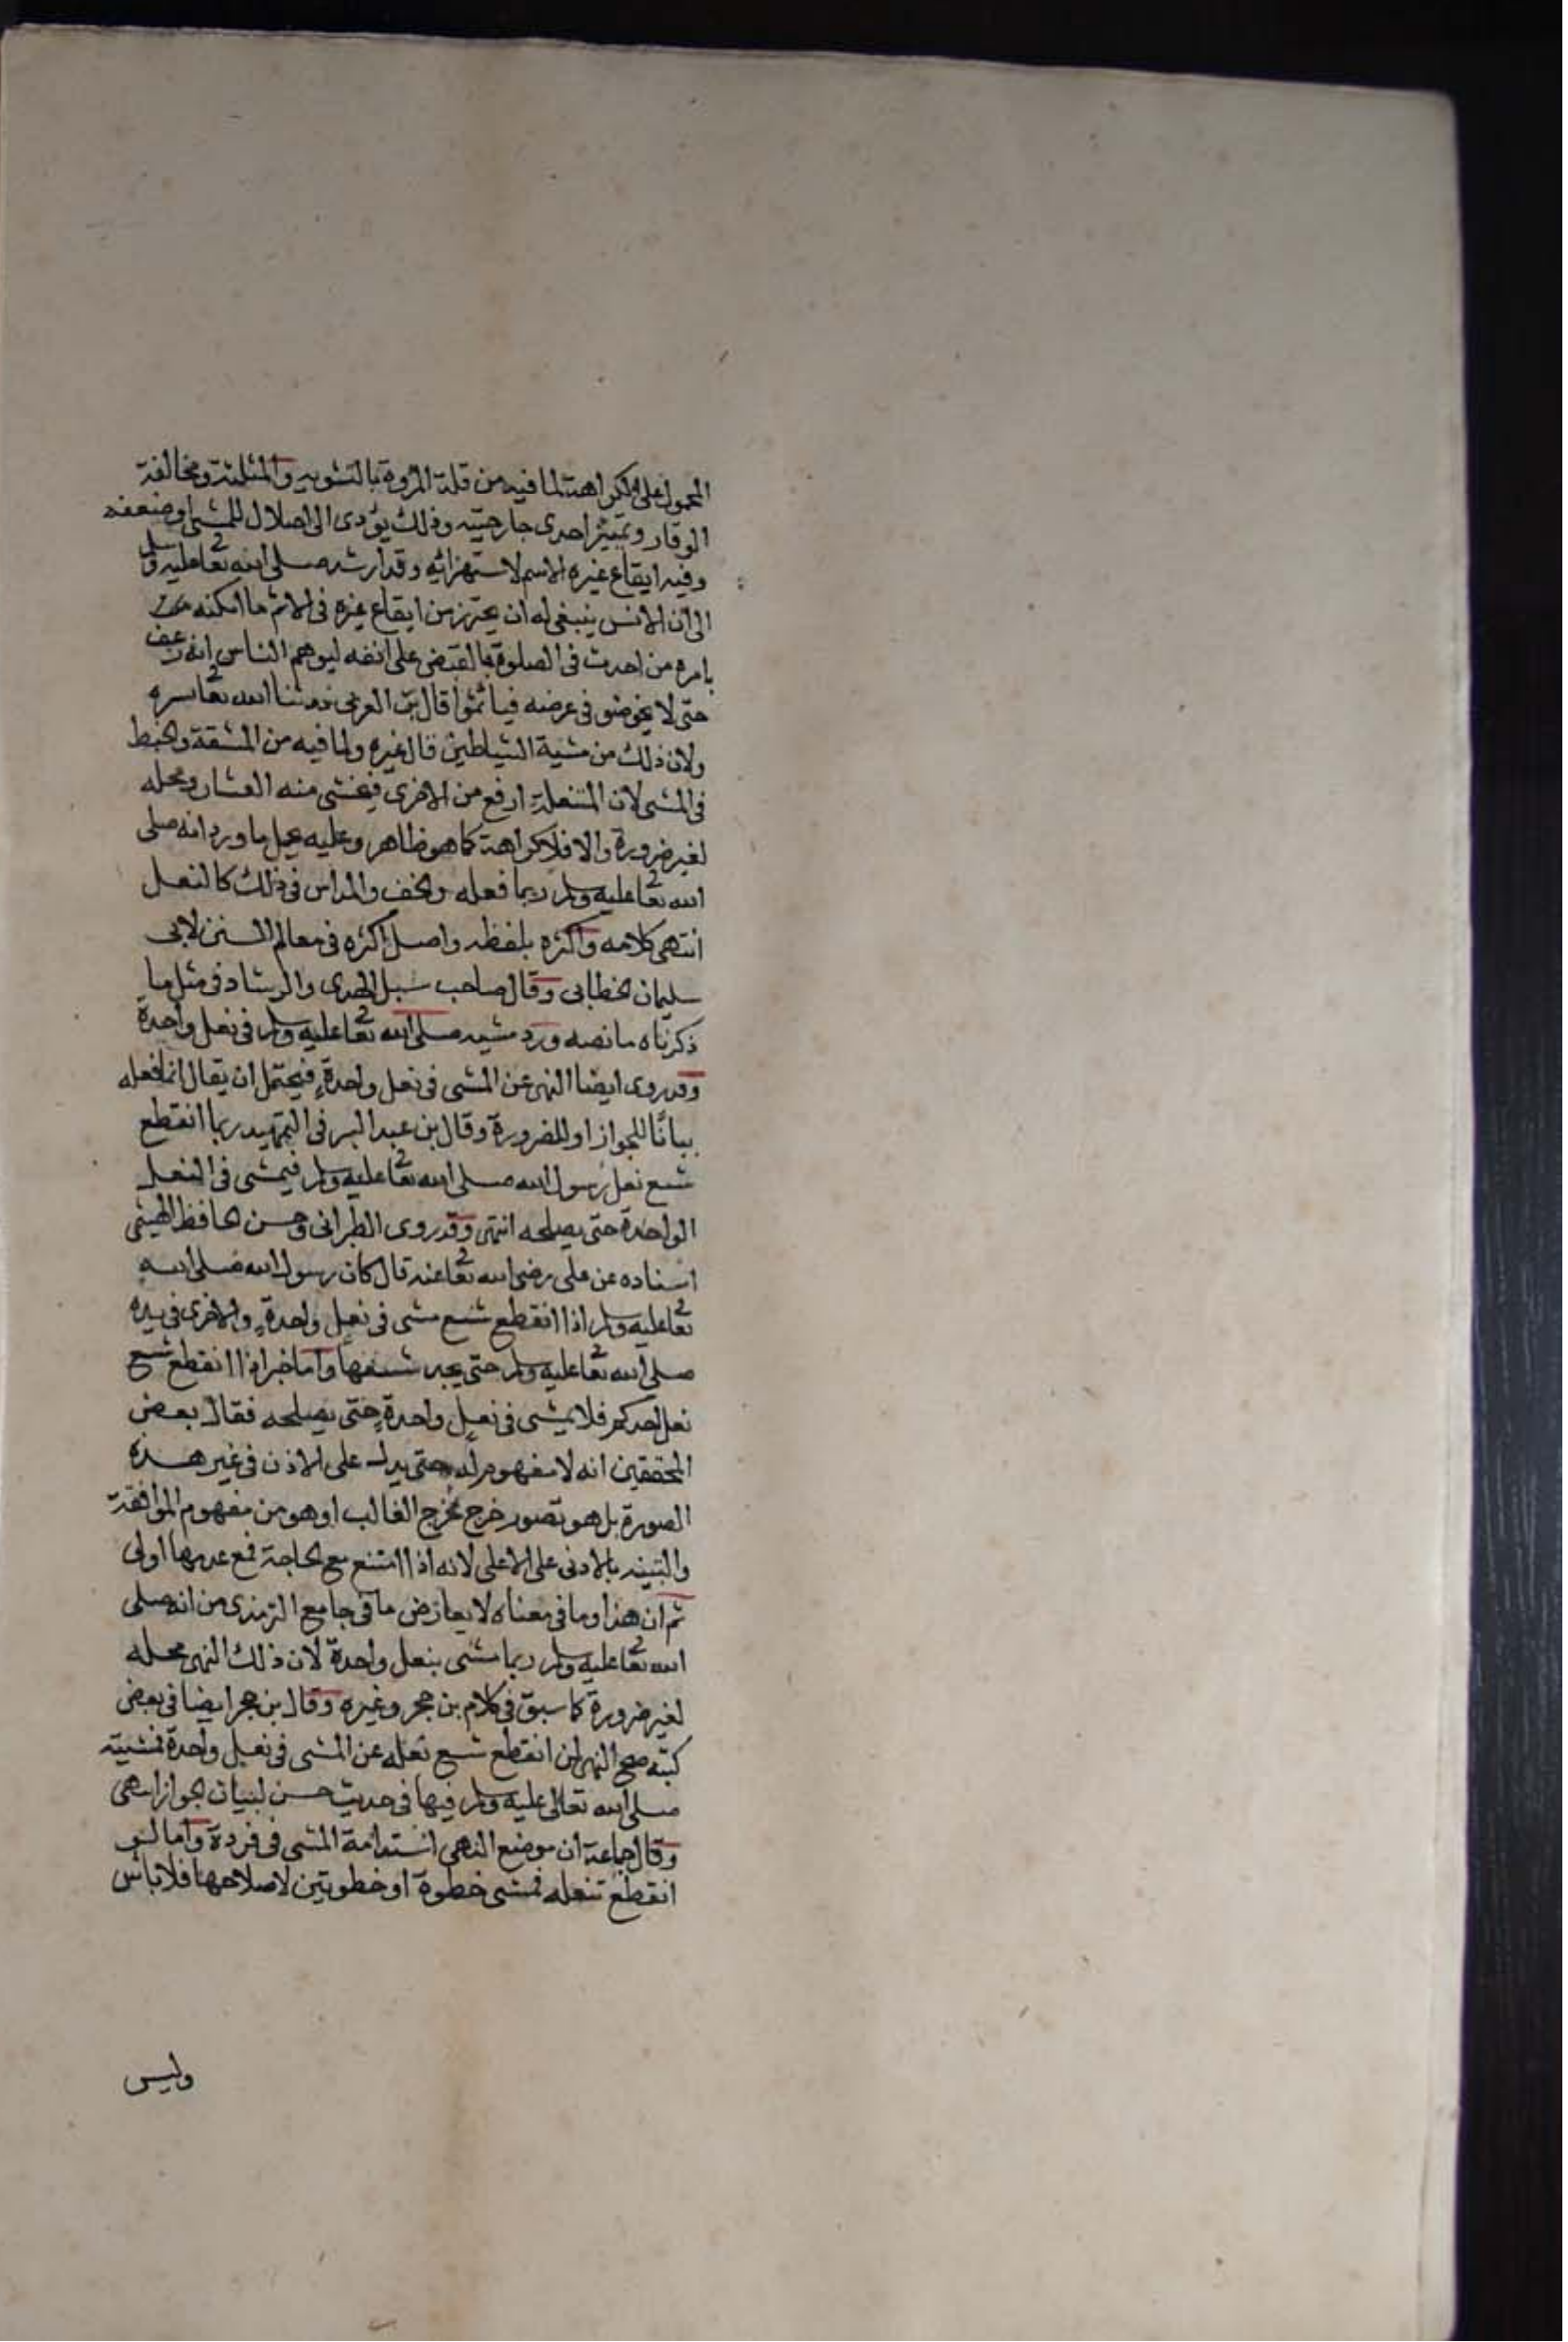 المحمول على الكراهة لما فيه من قلة المروة بالتشويه والمثلة ومخالفة
الوقار وتمييز احدى جارحتيه وذلك يؤدى الى اضلال للمشى او ضعفه
وفيه ايقاع غيره الاسم لاستهزائه وقد ارشد صلى الله تعا عليه وسلم
الى ان الانس ينبغى له ان يحترز من ايقاع غيره فى الاثم ما امكنه من
بامره من احدث فى الصلوة بالقبض على انفه ليوهم الناس انه رعف
حتى لا يخوضو فى عرضه فياثموا قال بن العربى قدسنا الله تعا سره
ولان ذلك من مشية الشياطين قال غيره ولما فيه من المشقة والخبط
فى المشى لان المنتعلة ارفع من الاخرى فيخشى منه العثار ومحله
لغير ضرورة والا فلا كراهة كما هو ظاهر وعليه يحمل ما ورد انه صلى
الله تعا عليه وسلم ربما فعله والخف والمداس فى ذلك كالنعل
انتهى كلامه واكثره بلفظه واصل اكثره فى معالم السنن لابى
سليمان الخطابى وقال صاحب سبل الهدى والرشاد فى مثل ما
ذكرناه ما نصه ورد مشيه صلى الله تعا عليه وسلم فى نعل واحدة
وقد روى ايضا النهى عن المشى فى نعل واحدةٍ فيحتمل ان يقال انما فعله
بيانًا للجواز او للضرورة وقال بن عبد البر فى التمهيد ربما انقطع
شسع نعل رسول الله صلى الله تعا عليه وسلم فيمشى فى النعل
الواحدة حتى يصلحه انتهى وقد روى الطبرانى وحسن الحافظ الهيثمى
اسناده عن على رضى الله تعا عنه قال كان رسول الله صلى الله
تعا عليه وسلم اذا انقطع شسع مشى فى نعل واحدةٍ والاخرى فى يده
صلى الله تعا عليه وسلم حتى يجد شسعها واما خبر اذا انقطع شسع
نعل احدكم فلا يمشى فى نعلٍ واحدةٍ حتى يصلحه فقال بعض
المحققين انه لا مفهوم له حتى يدل على الاذن فى غير هذه
الصورة بل هو تصور خرج مخرج الغالب او هو من مفهوم الموافقة
والتنبيه بالادنى على الاعلى لانه اذا امتنع مع الحاجة فمع عدمها اولى
ثم ان هذا وما فى معناه لا يعارض ما فى جامع الترمذى من انه صلى
الله تعا عليه وسلم ربما مشى بنعل واحدة لان ذلك النهى محله
لغير ضرورة كما سبق فى كلام بن حجر وغيره وقال بن حجر ايضا فى بعض
كتبه صح النهى لمن انقطع شسع نعله عن المشى فى نعل واحدة فمشيته
صلى الله تعالى عليه وسلم فيها فى حديث حسن لبيان الجواز انتهى
وقال جماعة ان موضع النهى استدامة المشى فى فردة واما لو
انقطع نعله فمشى خطوة او خطوتين لاصلاحها فلا باس
وليس